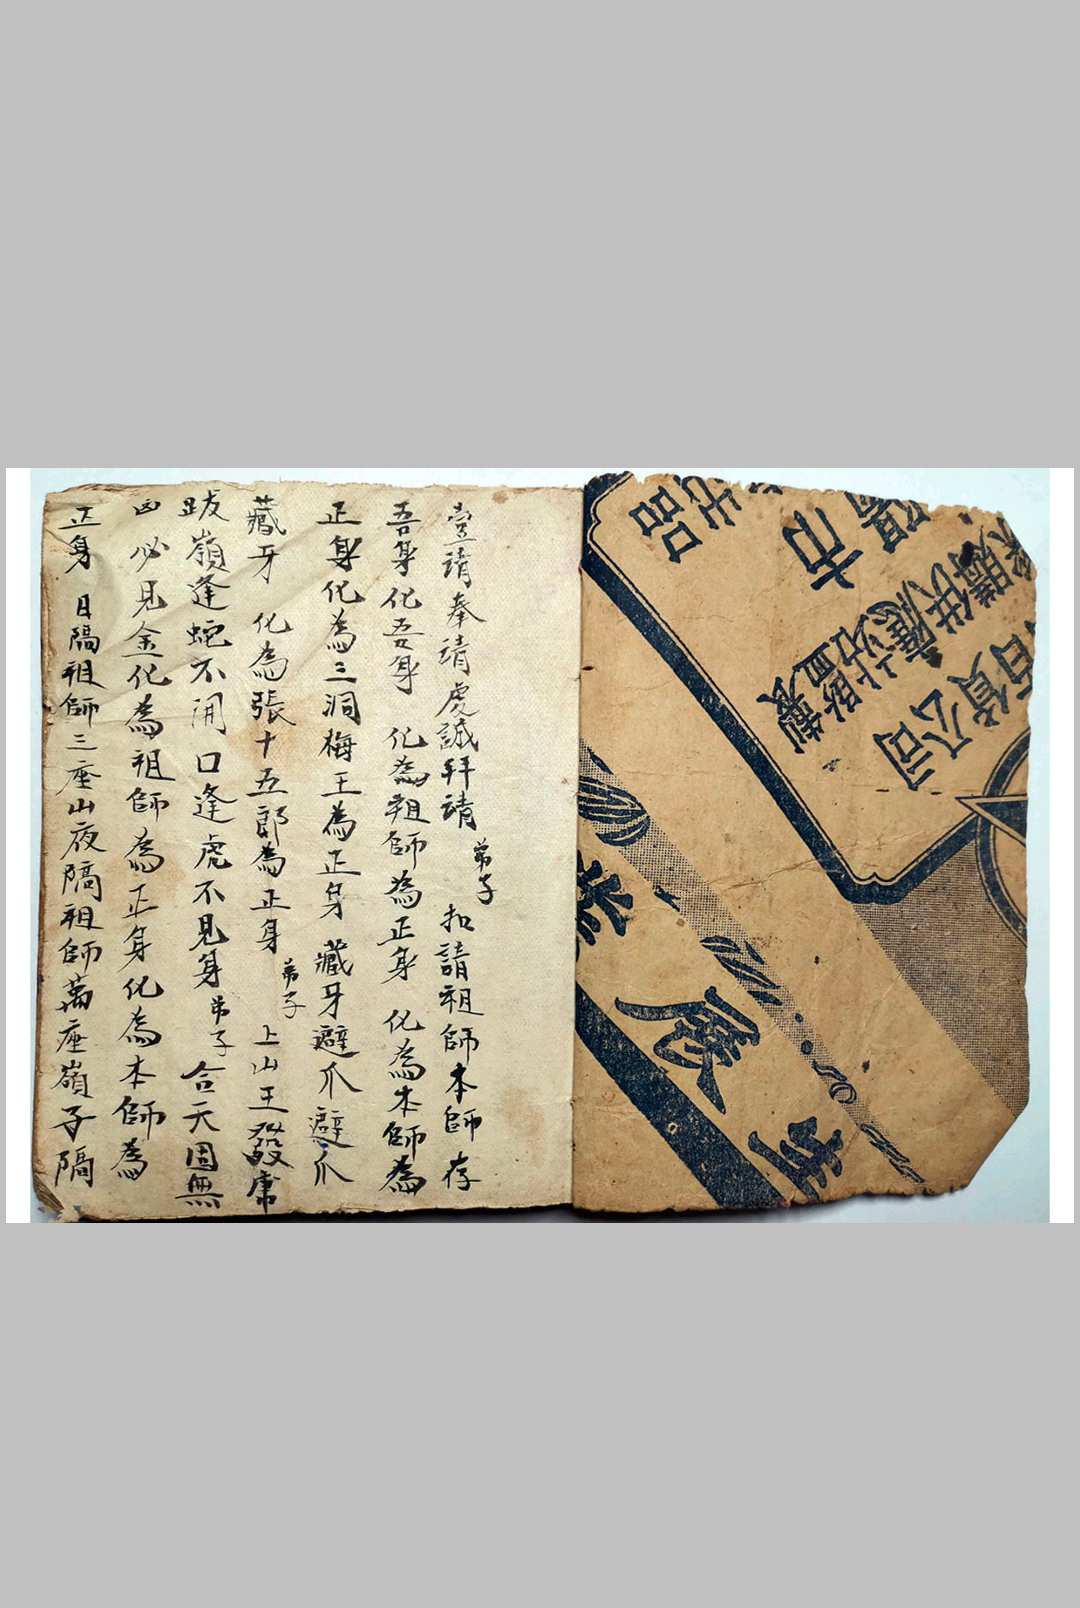 壹請奉請虔誠拜請弟子扣請祖師本師存
吾身化吾身 化為祖師為正身 化為本師為
正身化為三洞梅王為正身藏牙避爪避爪
藏牙 化為張十五郎為正身弟子上山王發
跋嶺逢蛇不開口逢虎不見身弟子合天因無
必見金化為祖師為正身化為本師為
正身 日隔祖師三座山夜隔祖師萬座嶺子隔
品
市
供應站監製
百貨公司